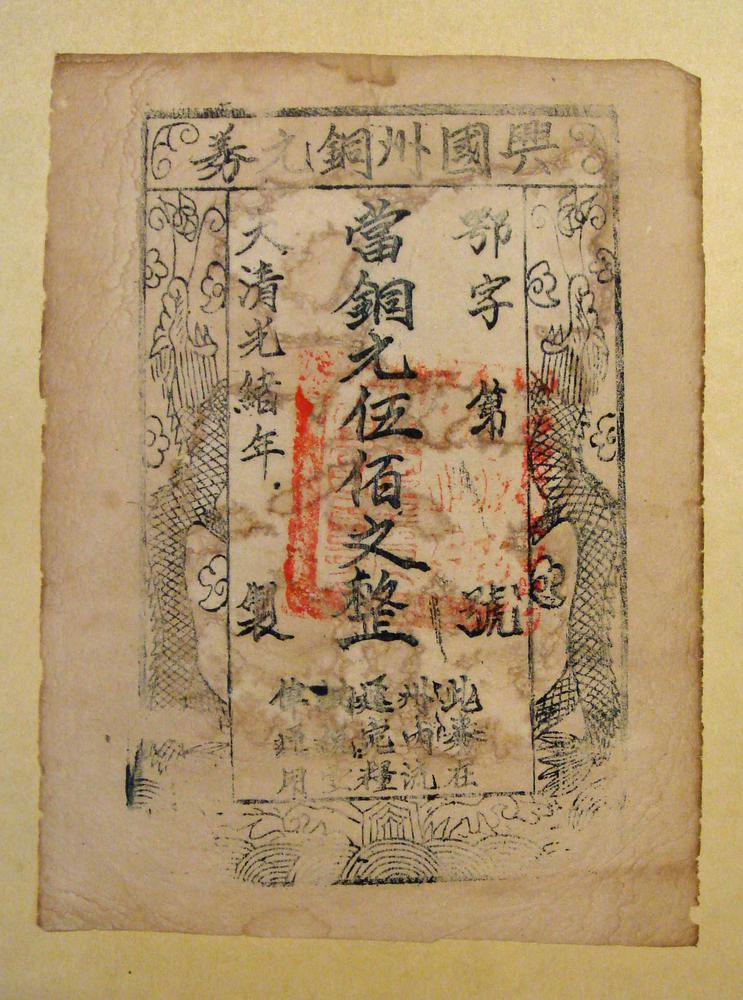 興國州銅元券
鄂字 第 號
當銅元伍佰文整
大清光緒年 製
此券在
州内流
通完糧
律通用